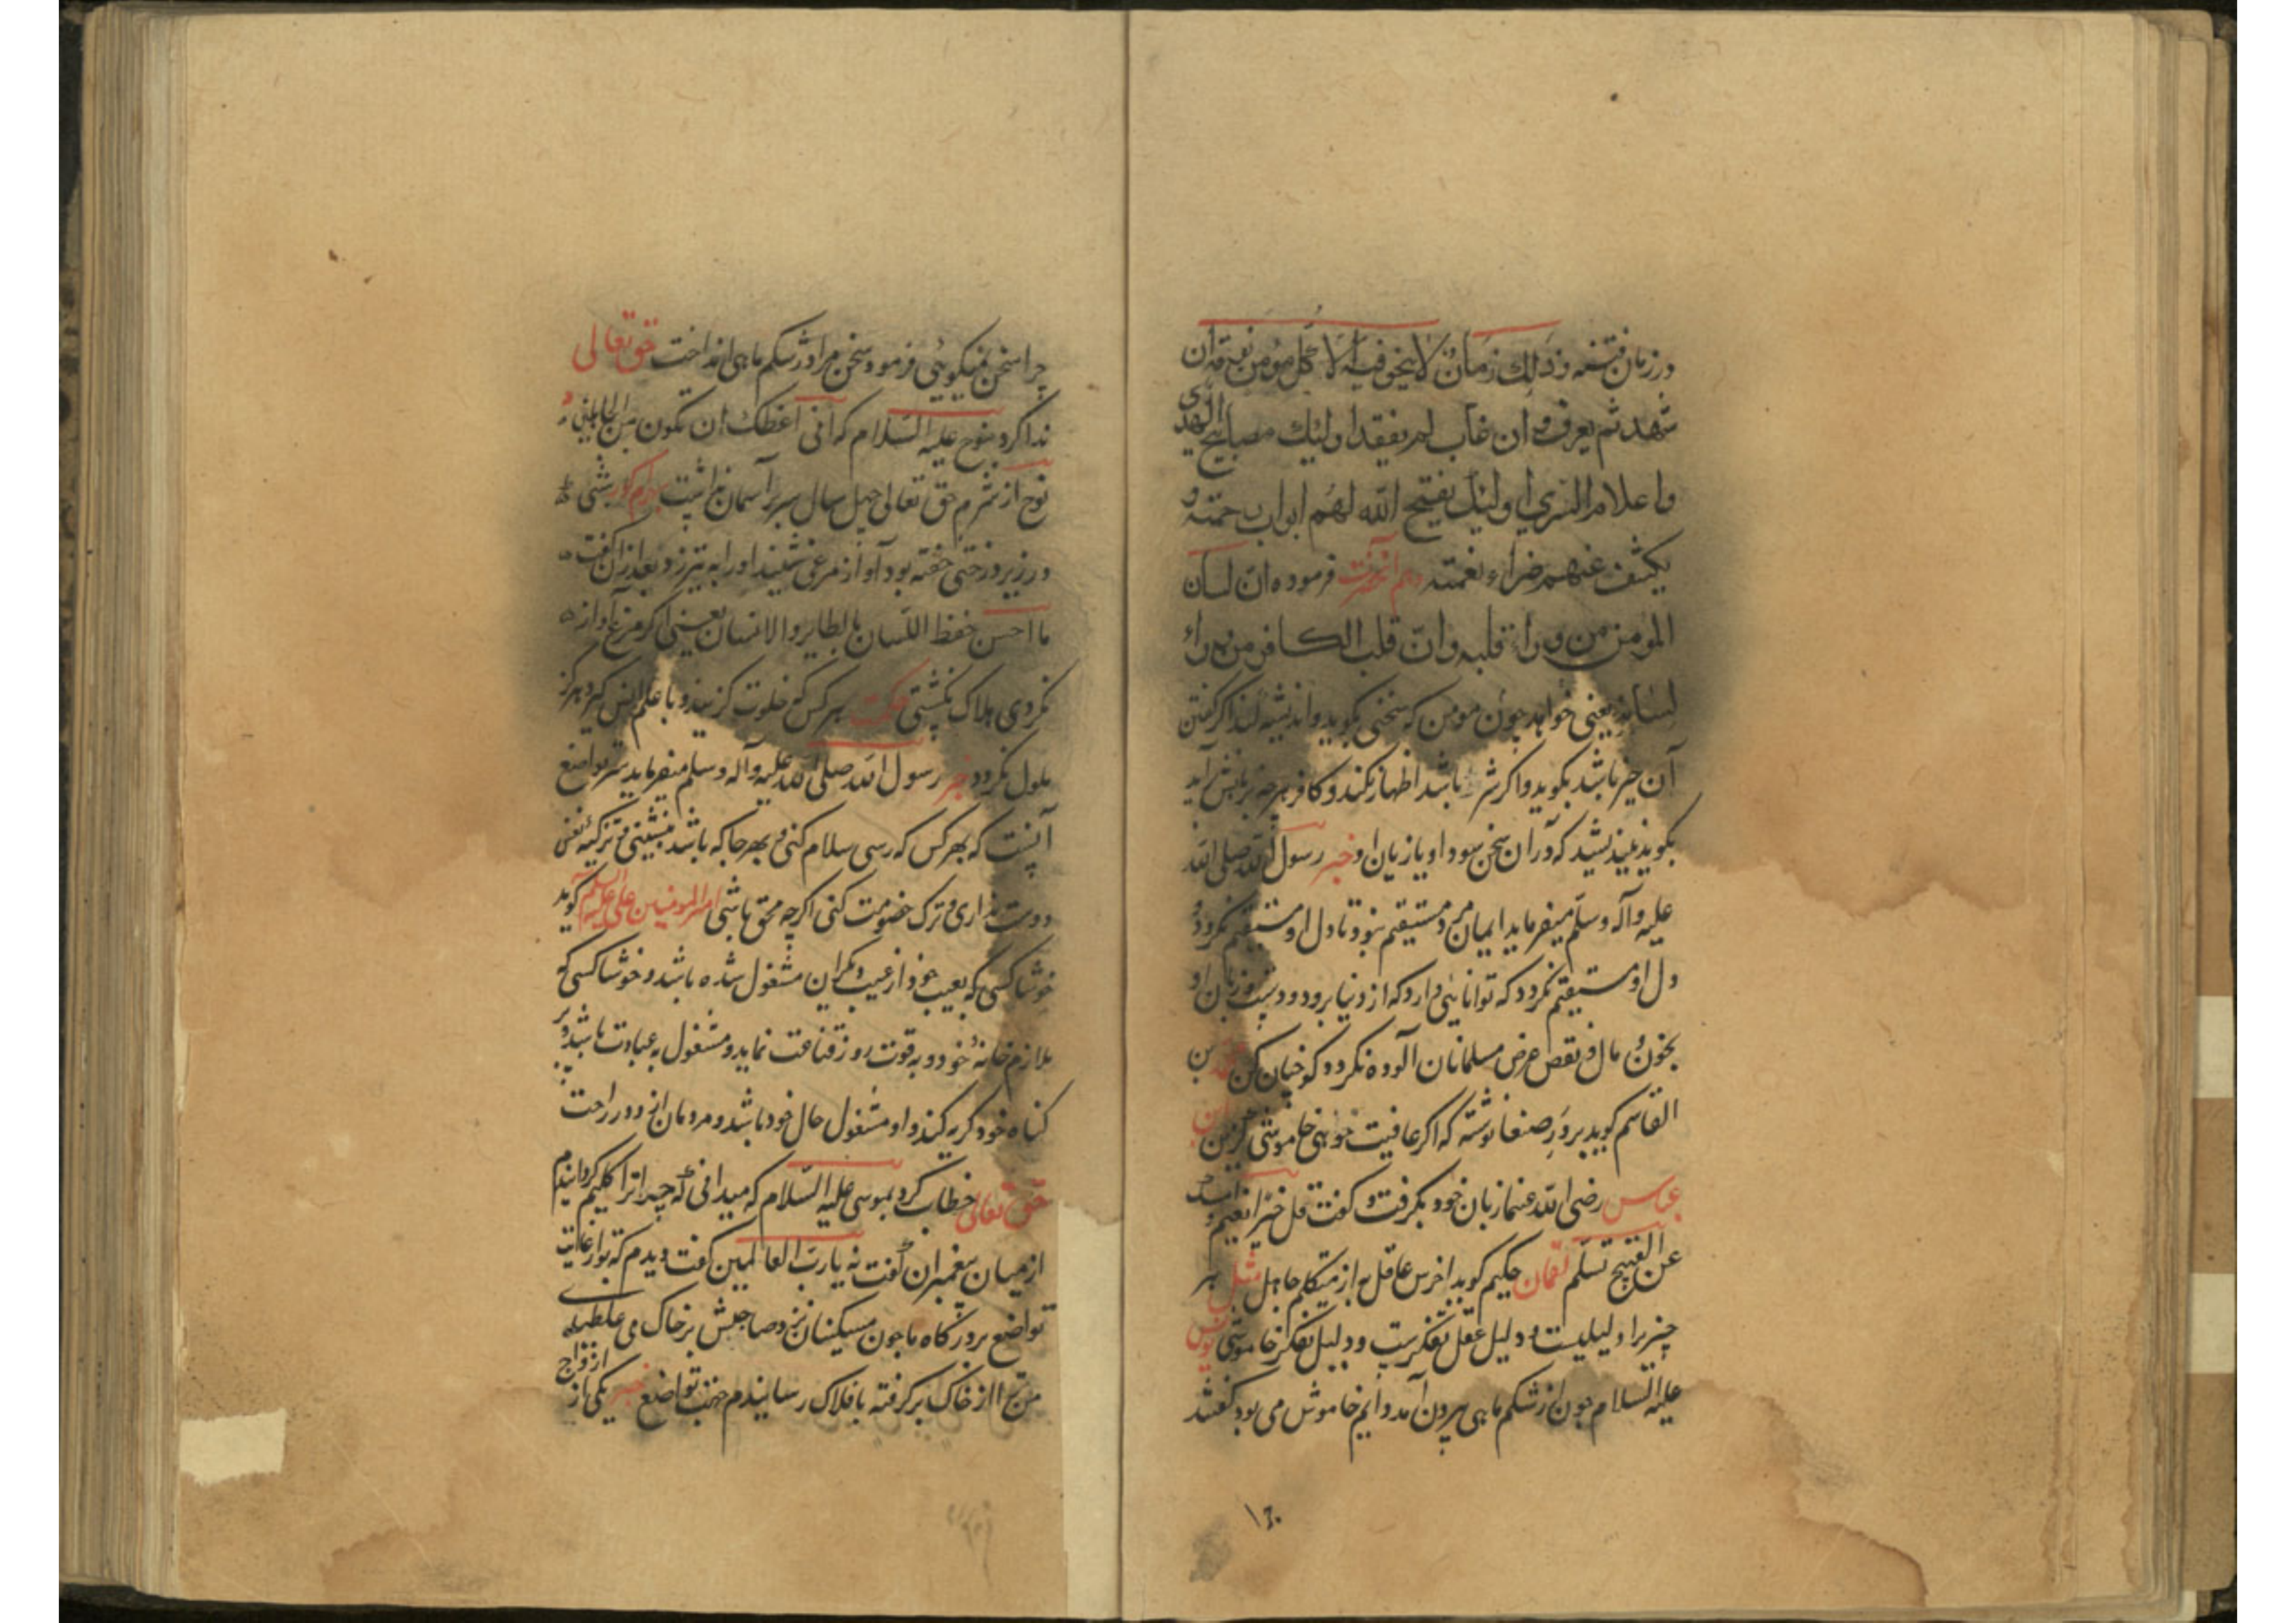 در زمان فتنه و ذلك زمان لا ينجو فيه الا كل مؤمن نومة ان
شهد لم يعرف و ان غاب لم يفقد اوليك مصابيح الهدى
و اعلام السرى اوليك يفتح الله لهم ابواب رحمته و
يكشف عنهم ضراء نقمته و هم آنحضرت فرموده ان لسان
المؤمن من وراء قلبه و ان قلب الكافر من وراء
لسانه یعنی خواهد چون مومن که سخنی بگوید واندیشه کند اگر گفتن
آن خیر باشد بگوید واگر شر باشد اظهار نکند و کافر هرچه بر زبانش آید
بگوید نیندیشد که در آن سخن سود او یا زیان او خبر رسول الله صلی الله
علیه وآله وسلم میفرماید ایمان مرد مستقیم نبود تا دل او مستقیم نگردد و
دل او مستقیم نگردد که توانایی دارد که از دنیا برود و دست و زبان او
بخون و مال و نقص عرض مسلمانان آلوده نگردد کو چنان کن بن
القاسم گوید بر در صنعا نوشته که اگر عافیت خواهی خاموشی گزین ابن
عباس رضی الله عنها زبان خود بگرفت و گفت قل خیرا تغنم و اسکت
عن القبیح تسلم لقمان حکیم گوید اخرس عاقل به از متکلم جاهل مثل هر
چیز را دلیلیست و دلیل عقل تفکرست و دلیل تفکر خاموشی یونس
علیه السلام چون از شکم ماهی بیرون آمد دایم خاموش می بود گفتند
چرا سخن نمیگویی فرمود سخن مرا در شکم ماهی انداخت حق تعالی
ندا کرد بنوح علیه السلام که انی اعظك ان تكون من الجاهلین
نوح از شرم حق تعالی چهل سال سر بر آسمان نداشت بهرام گور شبی
در زیر درختی خفته بود آواز مرغی شنید او را به تیر زد بعد از آن گفت
ما احسن حفظ اللسان بالطایر والانسان یعنی اگر مرغ آواز
نکردی هلاک نگشتی حکمت هر کس که خلوت گزیند و با علم انس گیرد هرگز
ملول نگردد خبر رسول الله صلی الله علیه وآله وسلم میفرماید سر تواضع
آنست که بهر کس که رسی سلام کنی و بهر جا که باشد بنشینی و تزکیه نفس
دوست نداری و ترک خصومت کنی اگرچه محق باشی امیر المومنین علی علیه السلام گوید
خوشا کسی که بعیب خود از عیب دیگران مشغول شده باشد و خوشا کسی که
ملازم خانه خود و به قوت روز قناعت نماید و مشغول به عبادت باشد و بر
گناه خود گریه کند و او مشغول حال خود باشد و مردمان ازو در راحت
حق تعالی خطاب کرد بموسی علیه السلام که میدانی که چرا ترا کلیم گردانیدم
از میان پیغمبران گفت نه یا رب العالمین گفت دیدم که تو از غایت
تواضع بر درگاه ما چون مسکینان نزد صاحبش بر خاک می غلطیدی
من ترا از خاک برگرفته بافلاک رسانیدم تواضع خبر یکی از ازواج
۱۲۰